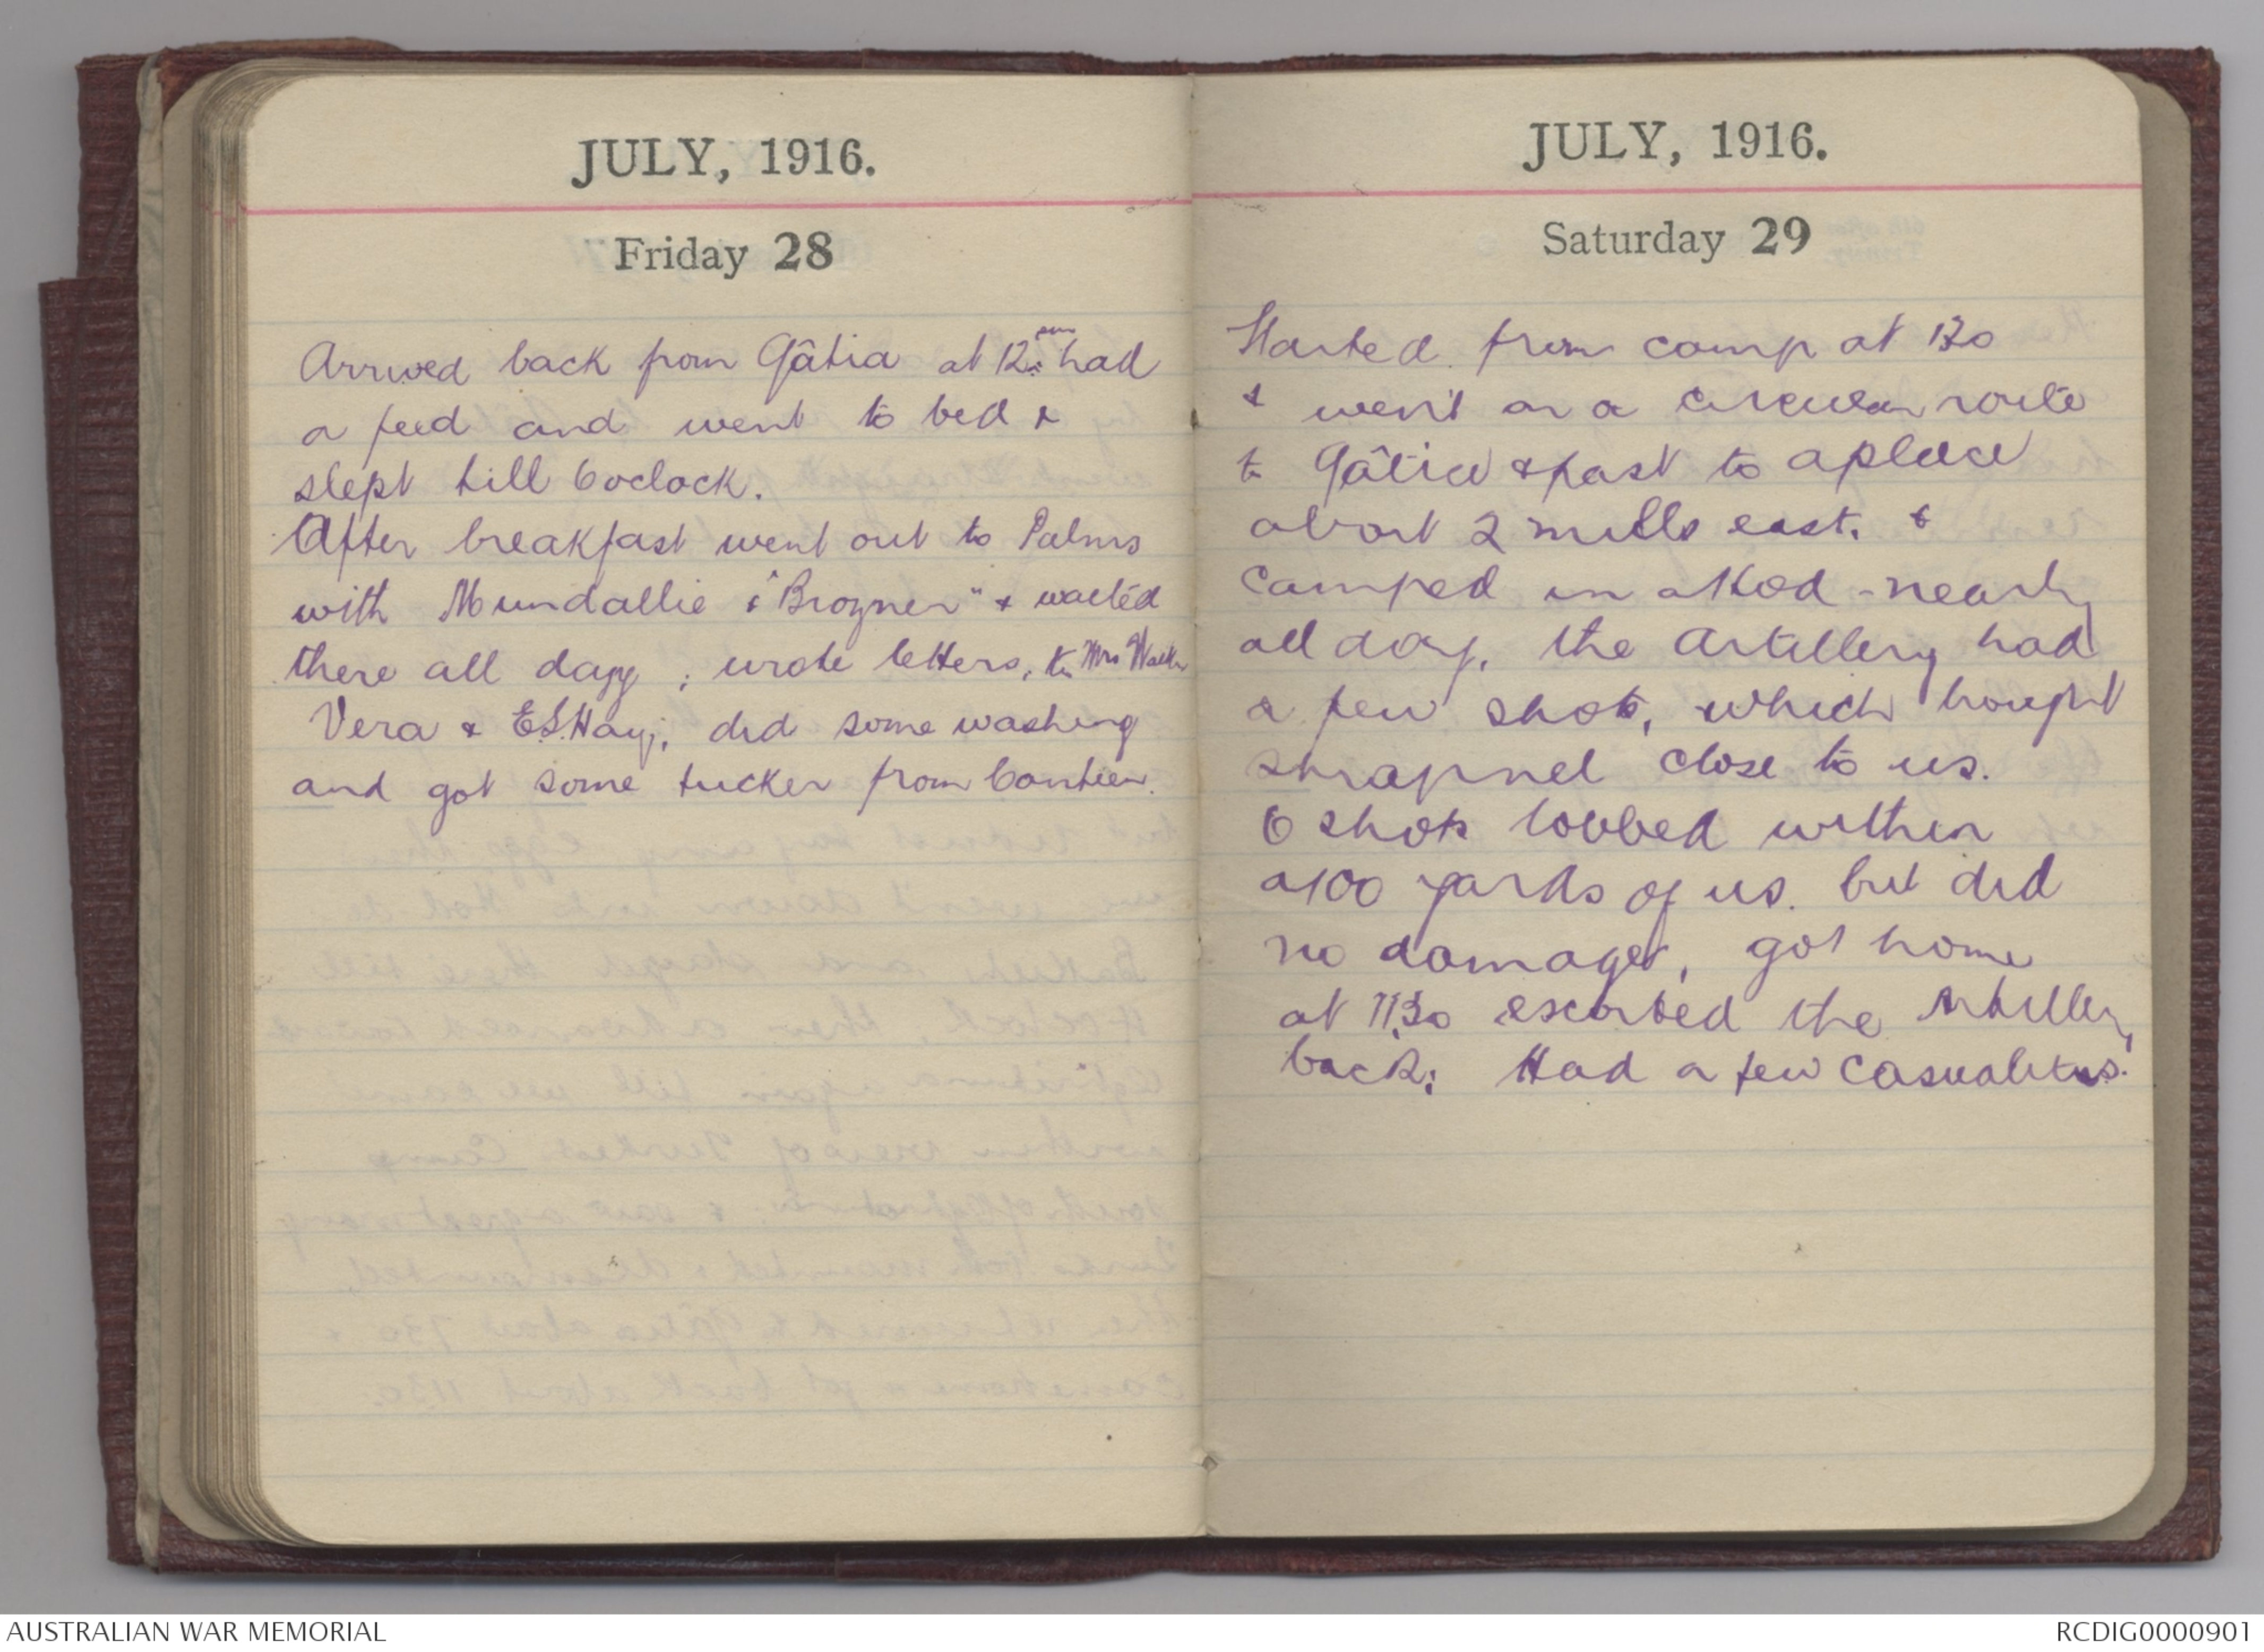 JULY, 1916.
Friday 28
Arrived back from Gâtia at 12 pm had
a feed and went to bed &
slept till 6oclock.
After breakfast went out to Palms
with Mundallie & "Brogner" & waited
there all day ; wrote letters, to Mrs
Vera & E.S.Hay, did some washing
and got some tucker from Canteen.
JULY, 1916.
Saturday 29
Started from camp at 130
& went on a circular route
to Gâtia & past to a place
about 2 mills east. &
camped in a Hod - nearly
all day, the Artillery had
a few shots, which bought
shrapnel close to us.
6 shots lobbed within
a 100 yards of us. but did
no damage, got home
at 1130 escorted the Artillery
back. Had a few
AUSTRALIAN WAR MEMORIAL
RCDIG0000901